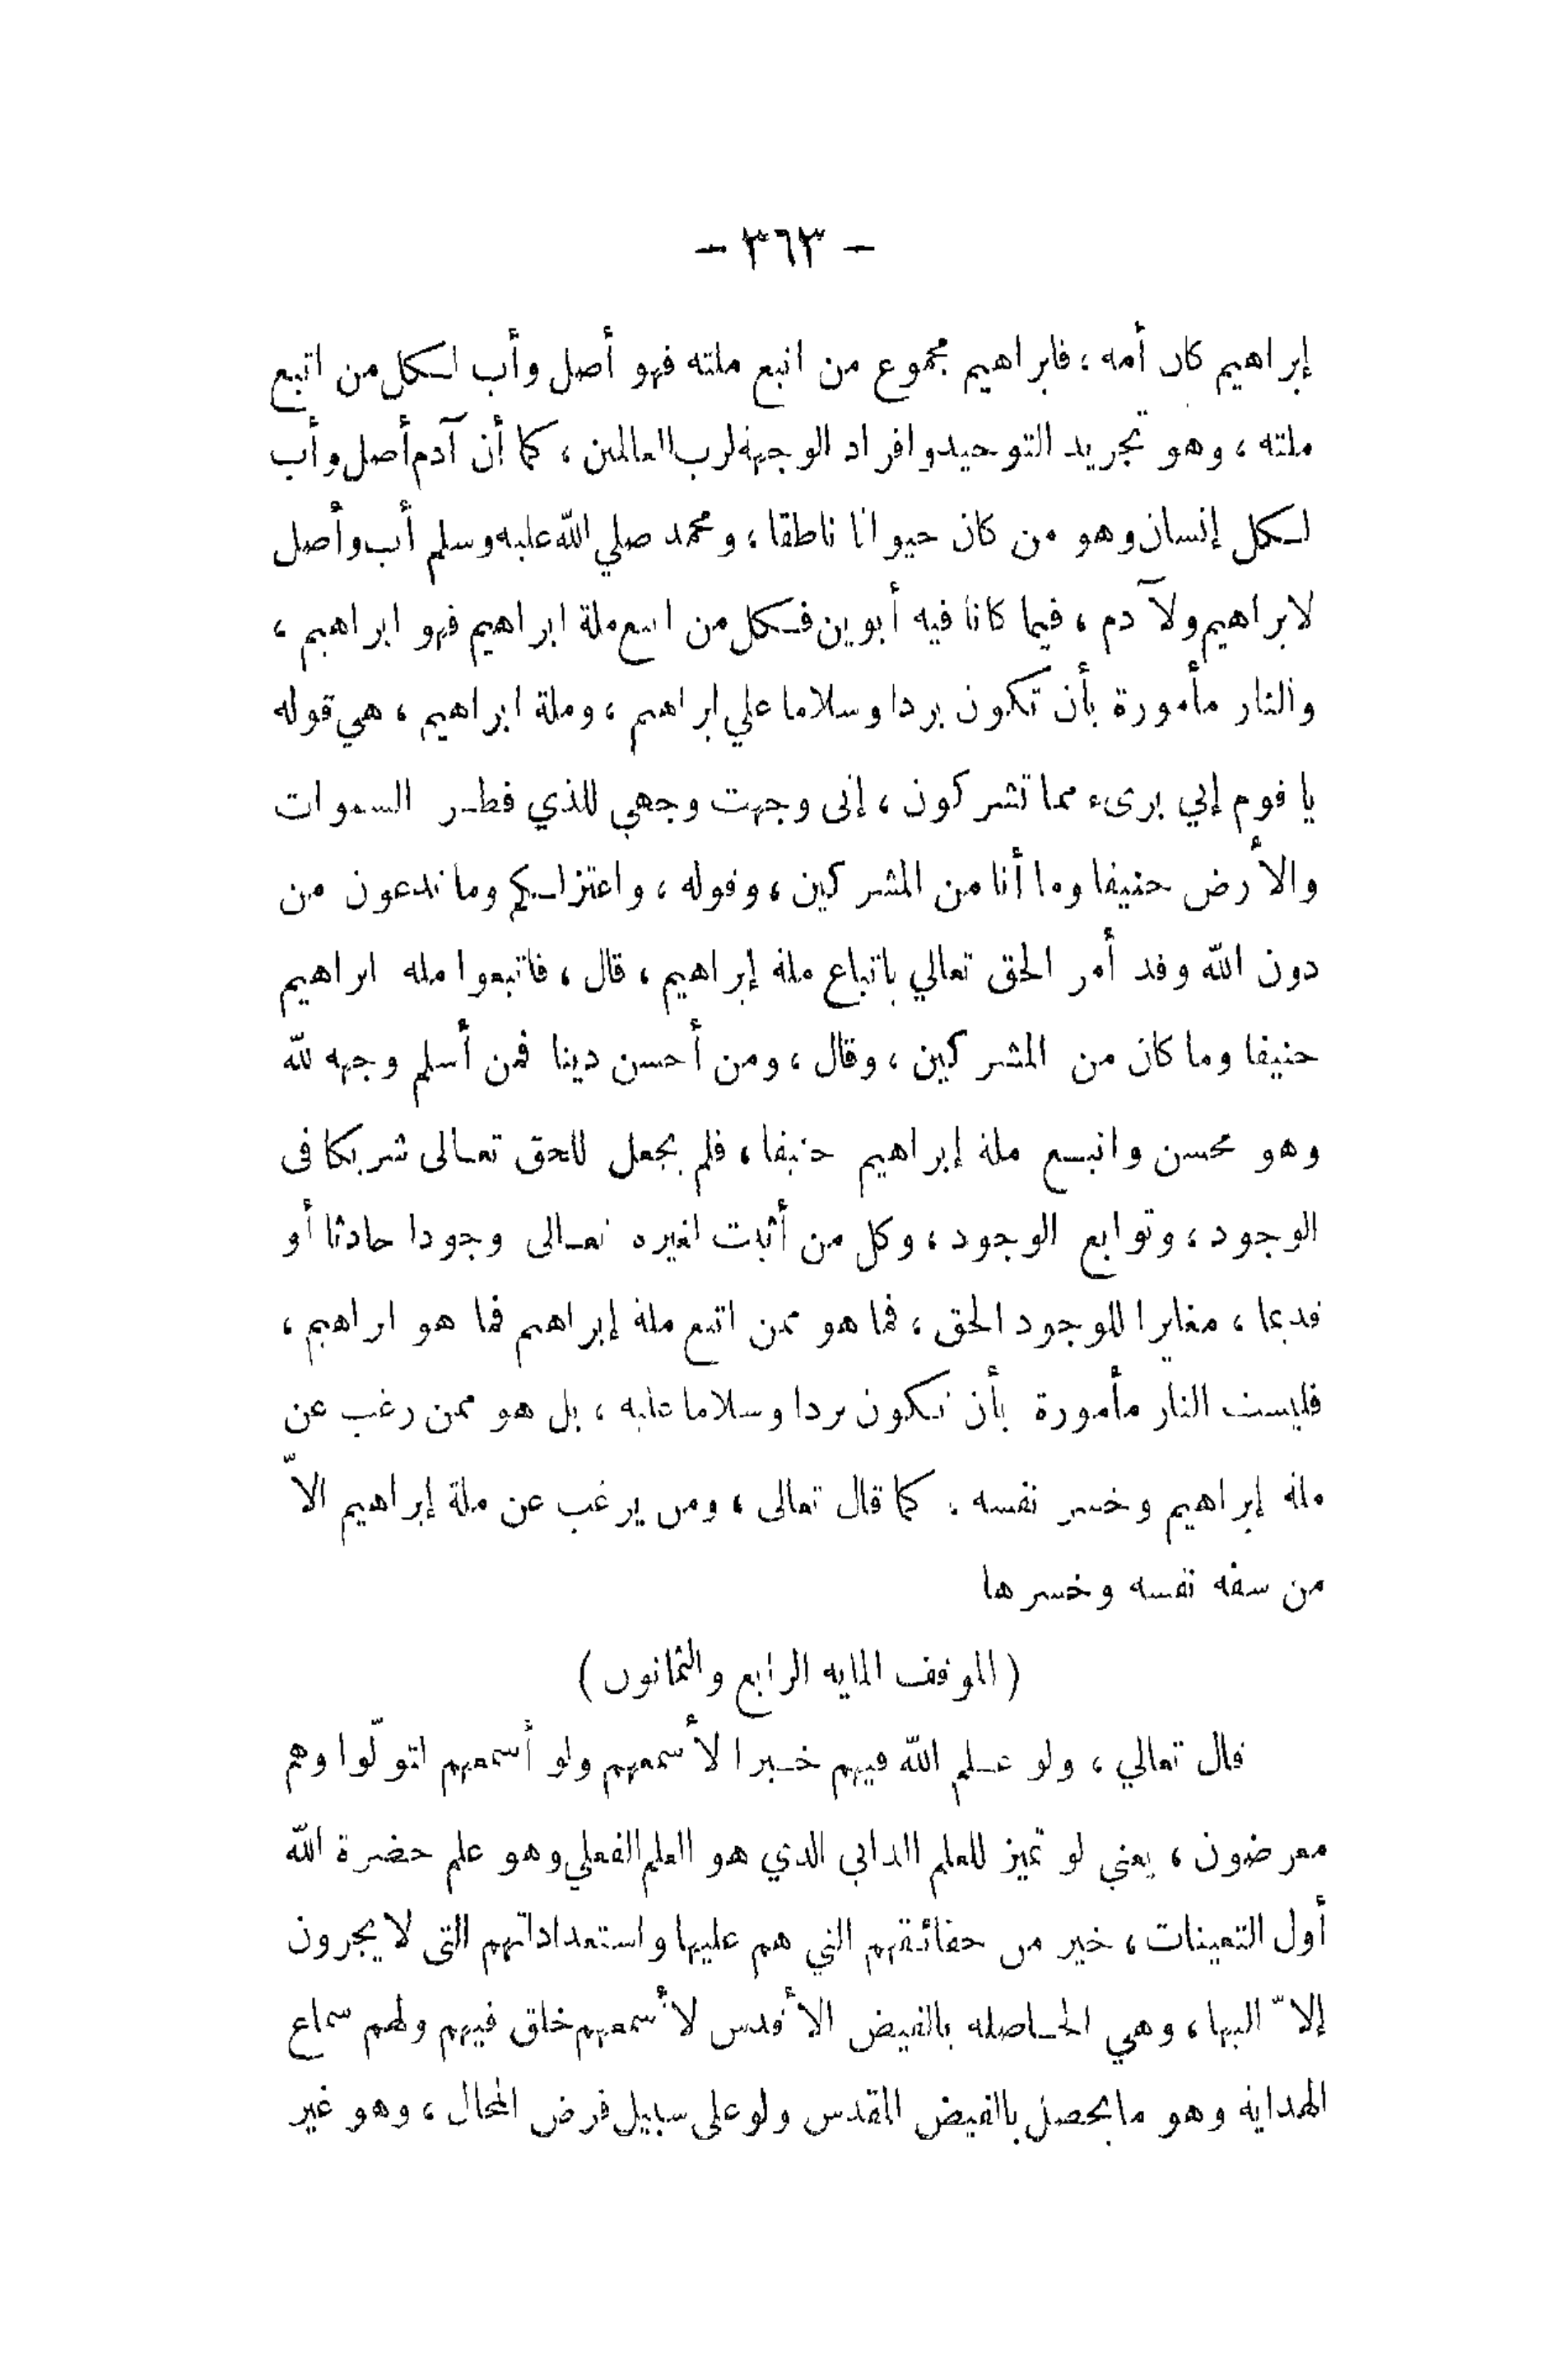 - ٣٦٣ -
إبراهيم كان أمة ، فابراهيم مجموع من اتبع ملته فهو أصل وأب لكل من اتبع
ملته ، وهو تجريد التوحيد وافراد الوجهة لرب العالمين ، كما أن آدم أصل وأب
لكل إنسان وهو من كان حيوانا ناطقا ، ومحمد صلي الله عليه وسلم أب وأصل
لابراهيم ولآدم ، فيما كانا فيه أبوين فكل من اتبع ملة ابراهيم فهو ابراهيم ،
والنار مأمورة بأن تكون بردا وسلاما علي ابراهيم ، وملة ابراهيم ، هي قوله
يا قوم إني برىء مما تشركون ، إنى وجهت وجهي للذي فطر السموات
والأرض حنيفا وما أنا من المشركين ، وقوله ، واعتزلكم وما تدعون من
دون الله وقد أمر الحق تعالي باتباع ملة إبراهيم ، قال ، فاتبعوا ملة ابراهيم
حنيفا وما كان من المشركين ، وقال ، ومن أحسن دينا فمن أسلم وجهه لله
وهو محسن واتبع ملة إبراهيم حنيفا ، فلم يجعل للحق تعالى شريكا فى
الوجود ، وتوابع الوجود ، وكل من أثبت لغيره تعالى وجودا حادثا أو
قديما ، مغايرا للوجود الحق ، فما هو ممن اتبع ملة إبراهيم فما هو ابراهيم ،
فليست النار مأمورة بأن تكون بردا وسلاما عليه ، بل هو ممن رغب عن
ملة إبراهيم وخسر نفسه . كما قال تعالى ، ومن يرغب عن ملة إبراهيم الاّ
من سفه نفسه وخسرها
( الموقف المايه الرابع والثمانون )
قال تعالي ، ولو علم الله فيهم خيرا لأسمعهم ولو أسمعهم لتولّوا وهم
معرضون ، يعني لو تميز للعلم الذاتي الذي هو العلم الفعلي وهو علم حضرة الله
أول التعينات ، خير من حقائقهم التي هم عليها واستعداداتهم التى لا يجرون
إلاّ اليها ، وهي الحاصلة بالفيض الأقدس لأسمعهم خلق فيهم ولهم سماع
الهداية وهو ما يحصل بالفيض المقدس ولو على سبيل فرض المحال ، وهو غير